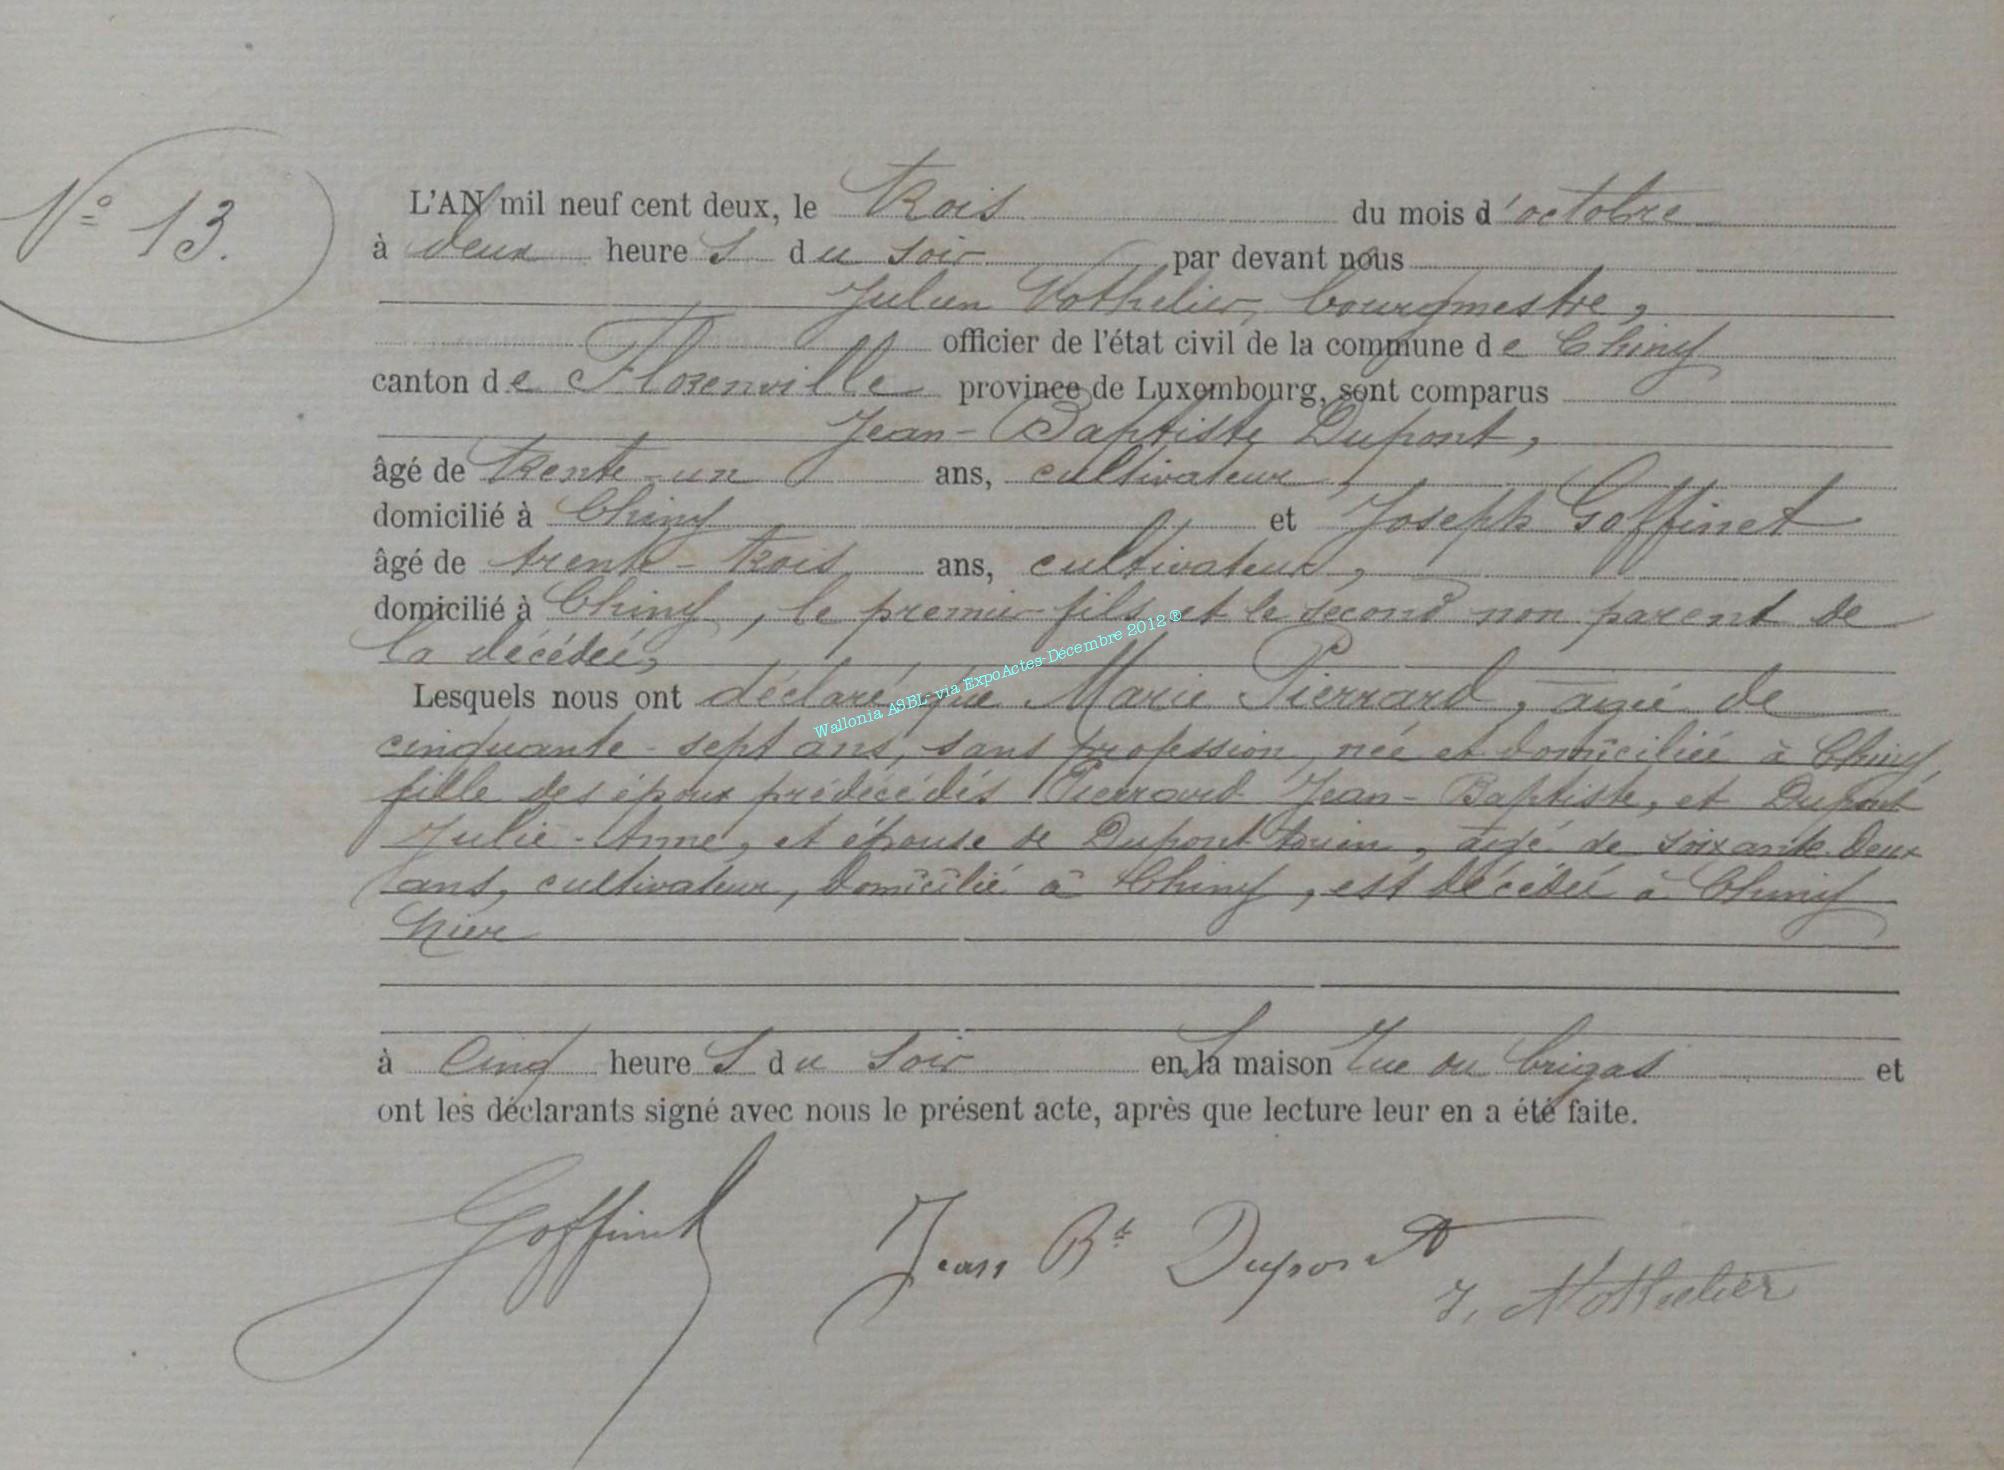 N° 13.
L'AN mil neuf cent deux, le trois du mois d'octobre
à deux heures du soir par devant nous
Julien Nothelier, bourgmestre,
officier de l'état civil de la commune de Chiny
canton de Florenville province de Luxembourg, sont comparus
Jean-Baptiste Dupont,
âgé de trente-un ans, cultivateur,
domicilié à Chiny et Joseph Goffinet
âgé de trente-trois ans, cultivateur,
domicilié à Chiny, le premier fils et le second non parent de
la décédée,
Lesquels nous ont déclaré que Marie Pierrard, agée de
cinquante-sept ans, sans profession, née et domiciliée à Chiny,
fille des époux prédécédés Pierrard Jean-Baptiste, et Dupont
Julie-Anne, et épouse de Dupont, agé de soixante-deux
ans, cultivateur, domicilié à Chiny, est décédée à Chiny
hier
à cinq heures du soir en sa maison rue et
ont les déclarants signé avec nous le présent acte, après que lecture leur en a été faite.
Goffinet Jean Bte Dupont
J. Nothelier
Wallonia ASBL- via ExpoActes-Décembre 2012 ®